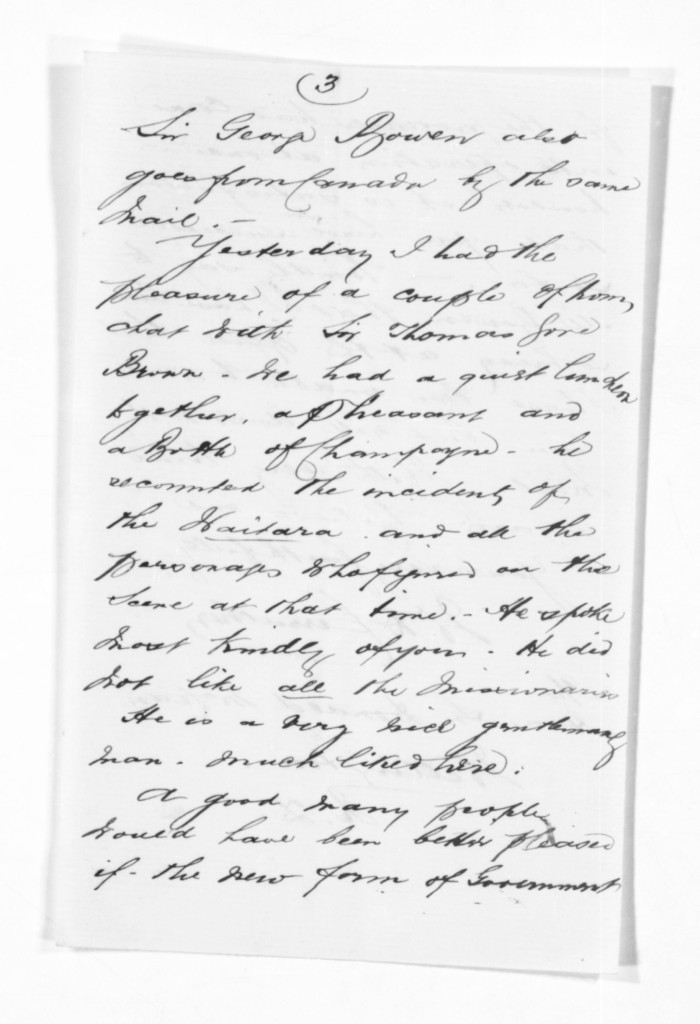 (3)
Sir George Bowen also
goes from Canada by the same
Mail. —
Yesterday I had the
pleasure of a couple of hours
chat with Sir Thomas Gore
Brown - We had a quiet luncheon
together, a Pheasant and
a Bottle of Champagne - he
recounted the incidents of
the Waitara and all the
personages who figured on the
Scene at that time. - He spoke
most kindly of you. He did
not like all the Missionaries
He is a very nice gentlemanly
man - much liked here.
A good many people
would have been better pleased
if - the new form of Government